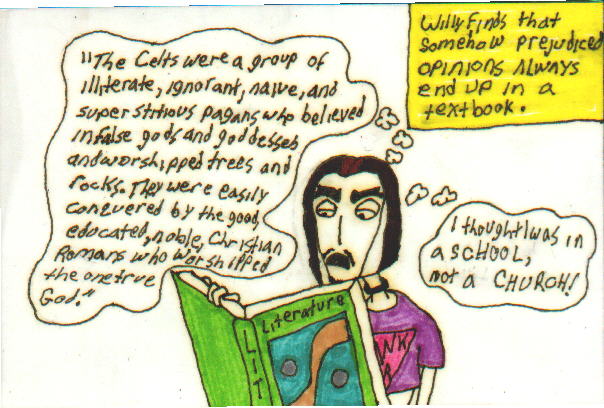 Willy finds that
somehow prejudiced
opinions ALWAYS
end up in a
textbook.
"The Celts were a group of
illiterate, ignorant, naive, and
superstitious pagans who believed
in false gods and goddesses
and worshipped trees and
rocks. They were easily
conquered by the good,
educated, noble, Christian
Romans who worshipped
the one true
God."
I thought I was in
a SCHOOL,
not a CHURCH!
Literature
LIT
NK